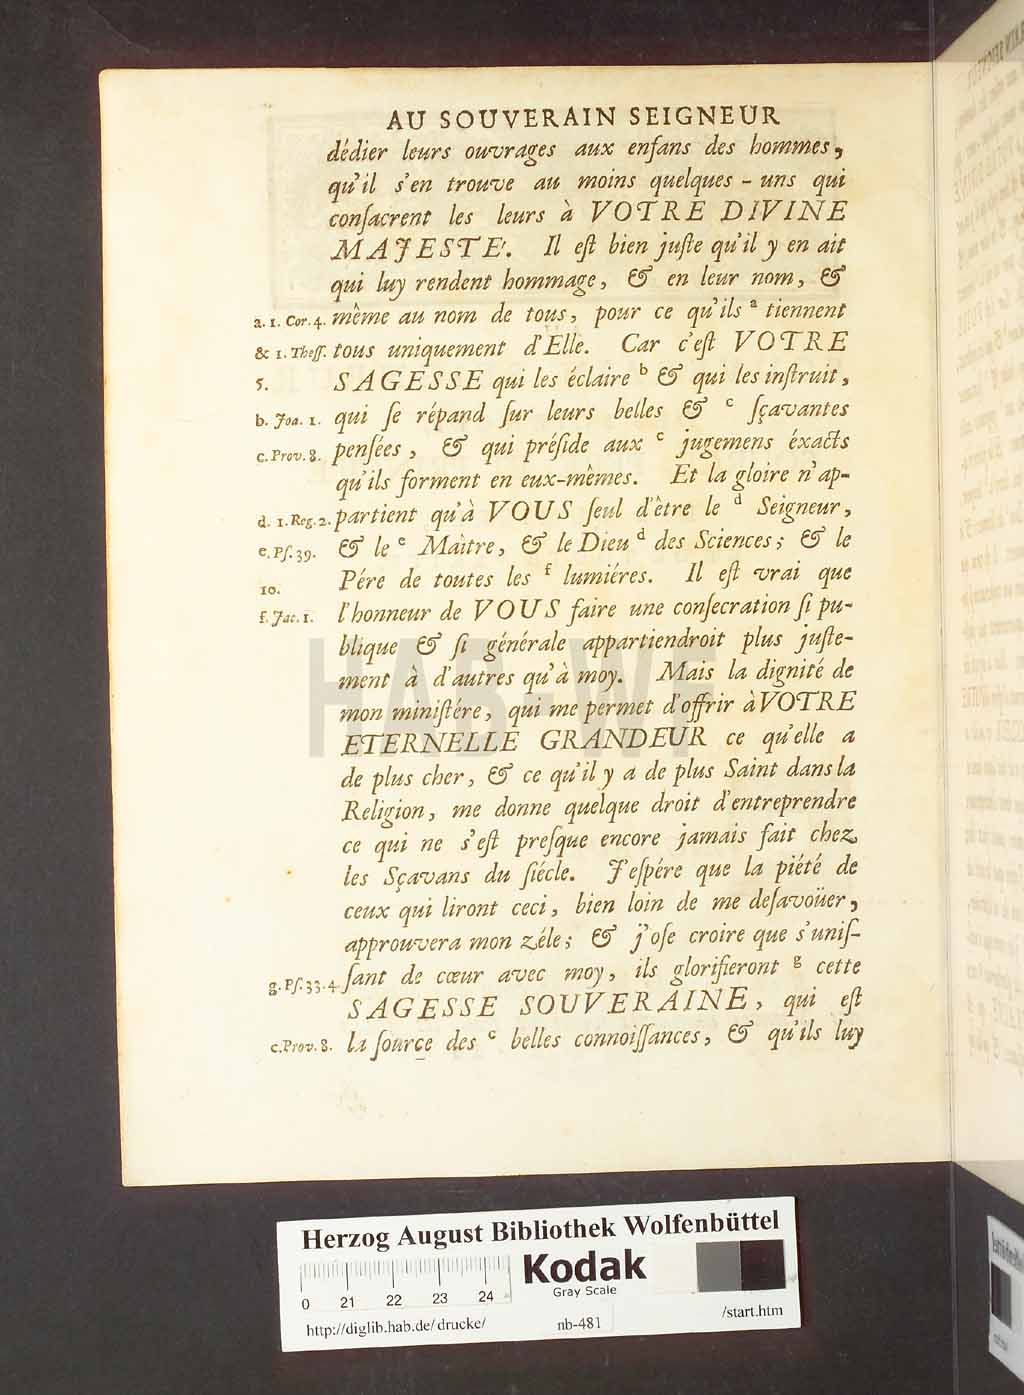 AU SOUVERAIN SEIGNEUR
dédier leurs ouvrages aux enfans des hommes,
qu'il s'en trouve au moins quelques-uns qui
conſacrent les leurs à VOTRE DIVINE
MAJESTE'. Il eſt bien juſte qu'il y en ait
qui luy rendent hommage, & en leur nom, &
a. 1. Cor. 4. même au nom de tous, pour ce qu'ils a tiennent
& 1. Theſſ. tous uniquement d'Elle. Car c'eſt VOTRE
5. SAGESSE qui les éclaire b & qui les inſtruit,
b. Joa. 1. qui ſe répand ſur leurs belles & c ſçavantes
c. Prov. 8. penſées, & qui préſide aux c jugemens éxacts
qu'ils forment en eux-mêmes. Et la gloire n'ap-
d. 1. Reg. 2. partient qu'à VOUS ſeul d'être le d Seigneur,
e. Pſ. 39. & le e Maître, & le Dieu d des Sciences; & le
10. Pére de toutes les f lumiéres. Il eſt vrai que
f. Jac. 1. l'honneur de VOUS faire une conſecration ſi pu-
blique & ſi générale appartiendroit plus juſte-
ment à d'autres qu'à moy. Mais la dignité de
mon miniſtére, qui me permet d'offrir à VOTRE
ETERNELLE GRANDEUR ce qu'elle a
de plus cher, & ce qu'il y a de plus Saint dans la
Religion, me donne quelque droit d'entreprendre
ce qui ne s'eſt preſque encore jamais fait chez
les Sçavans du ſiécle. J'eſpére que la piété de
ceux qui liront ceci, bien loin de me deſavoüer,
approuvera mon zéle; & j'oſe croire que s'uniſ-
g. Pſ. 33. 4. ſant de cœur avec moy, ils glorifieront g cette
SAGESSE SOUVERAINE, qui eſt
c. Prov. 8. la ſource des c belles connoiſſances, & qu'ils luy
HAB-WF
Herzog August Bibliothek Wolfenbüttel
Kodak
Gray Scale
0 21 22 23 24
http://diglib.hab.de/drucke/ nb-481 /start.htm